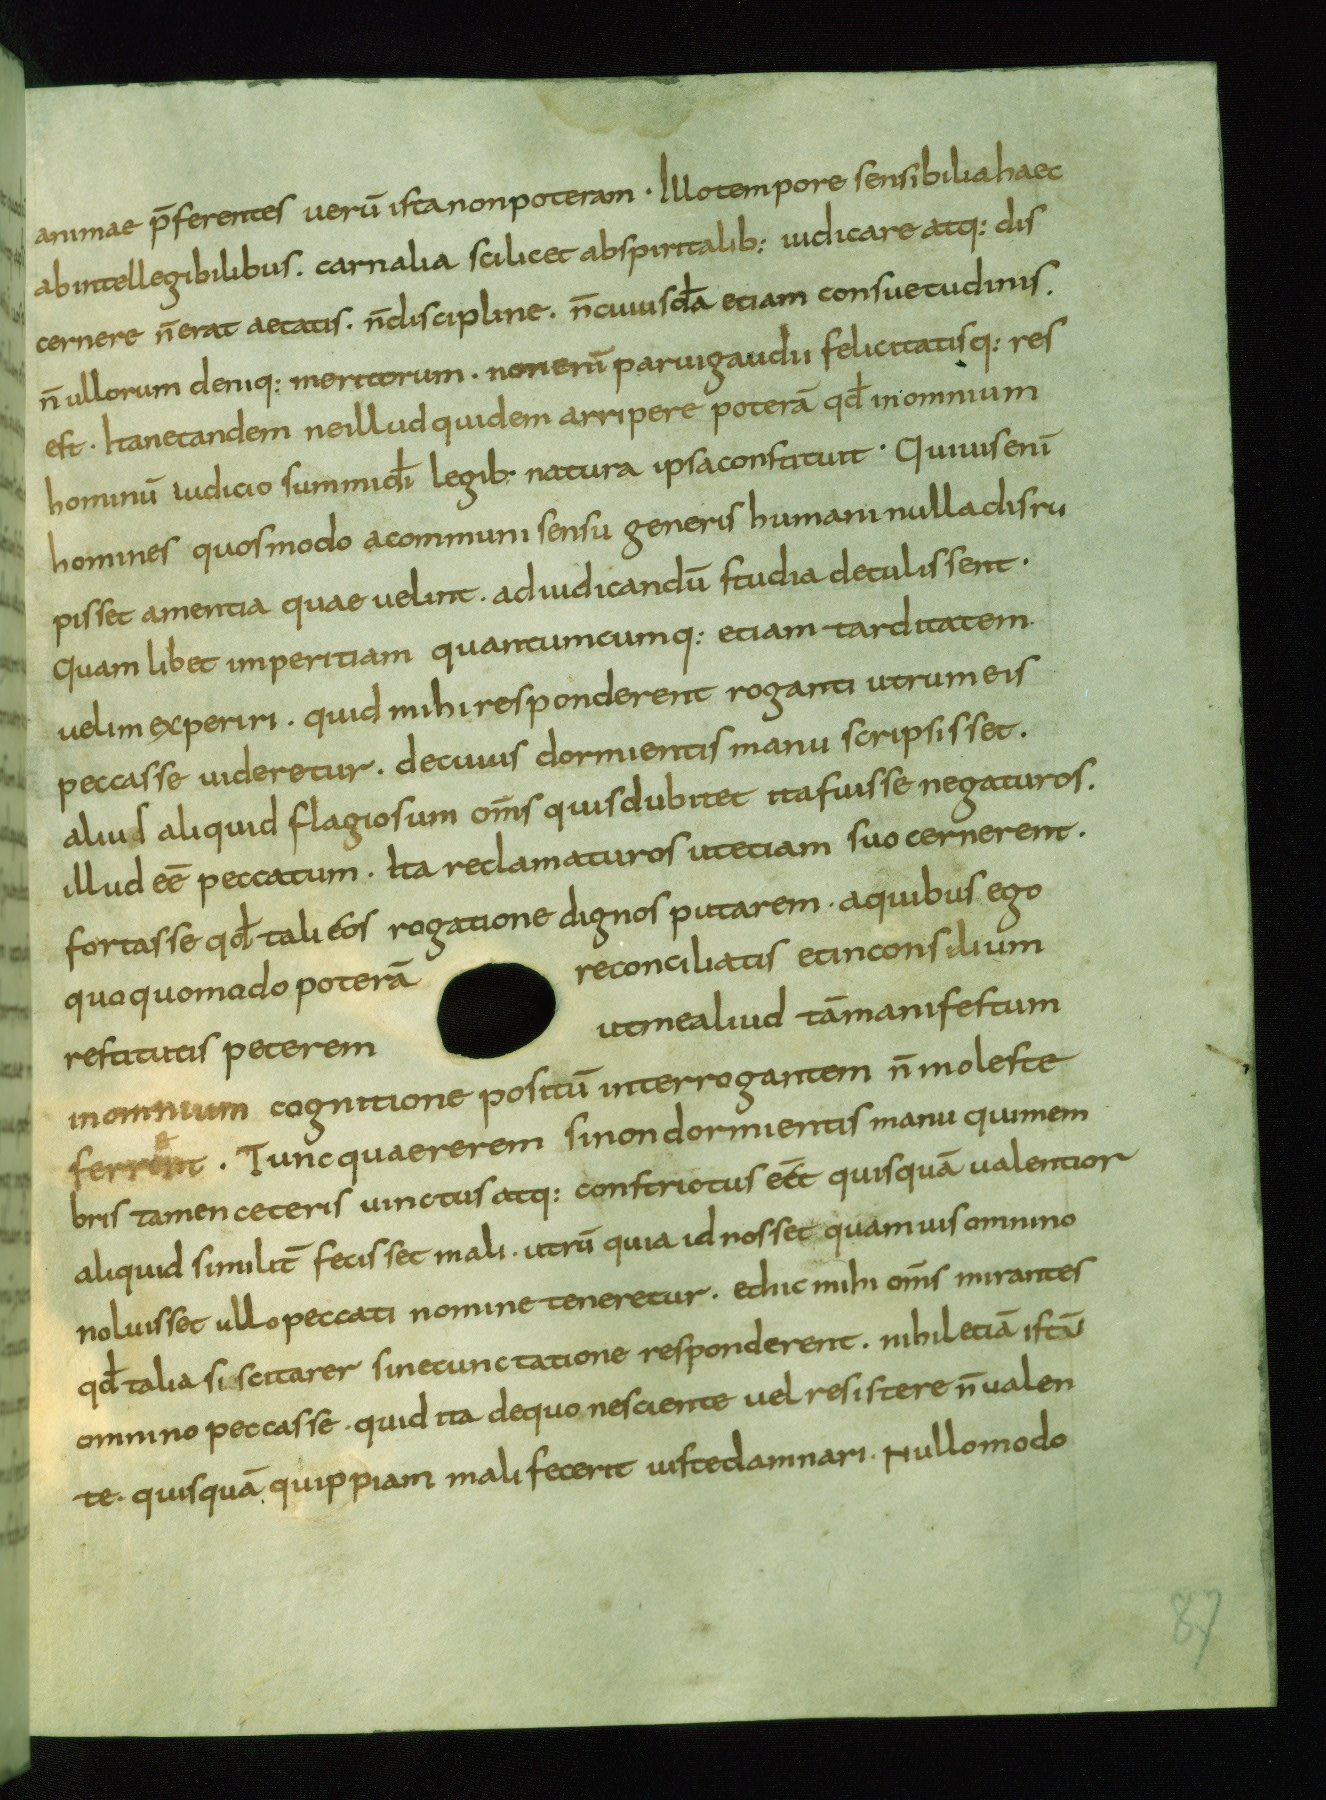 animae p̄ferentes uerū ista non poteram · Illo tempore sensibilia haec
ab intellegibilibus. carnalia scilicet ab spiritalib: iudicare atq: dis
cernere n̄ erat aetatis. n̄ discipline. n̄ cuiusdā etiam consuetudinis.
n̄ ullorum deniq: meritorum. non enī parui gaudii felicitatisq: res
est. Itane tandem ne illud quidem arripere poterā qđ in omnium
hominū iudicio summi dī legib: natura ipsa constituit · Quiuis enī
homines quos modo a communi sensu generis humani nulla disru
pisset amentia quae uelint. ad iudicandū studia detulissent.
Quam libet imperitiam quantumcumq: etiam tarditatem
uelim experiri. quid mihi responderent roganti utrum eis
peccasse uideretur. de cuius dormientis manu scripsisset.
alius aliquid flagiosum om̄s quis dubitet ita fuisse negaturos.
illud eē peccatum. Ita reclamaturos ut etiam suo cernerent.
fortasse qđ tali eos rogatione dignos putarem. a quibus ego
quoquomodo poterā reconciliatis et in consilium
restitutis peterem ut me aliud tā manifestum
in omnium cognitione positū interrogantem n̄ moleste
ferrent. Tunc quaererem si non dormientis manu qui mem
bris tamen ceteris uinctus atq: constrictus eēt quisquā ualentior
aliquid similit̄ fecisset mali. utrū quia id nosset quamuis omnino
noluisset ullo peccati nomine teneretur. et hic mihi om̄s mirantes
qđ talia siscitarer sine tunctatione responderent. nihil etiā istū
omnino peccasse. quid ita de quo nesciente uel resistere n̄ualen
te. quisquā quippiam mali fecerit iuste damnari. Nullo modo
87